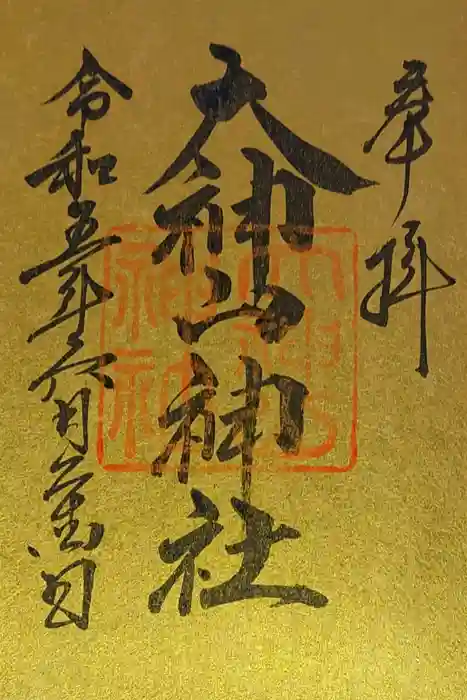 奉拝
大神山神社
令和五年六月日
大神山
神社